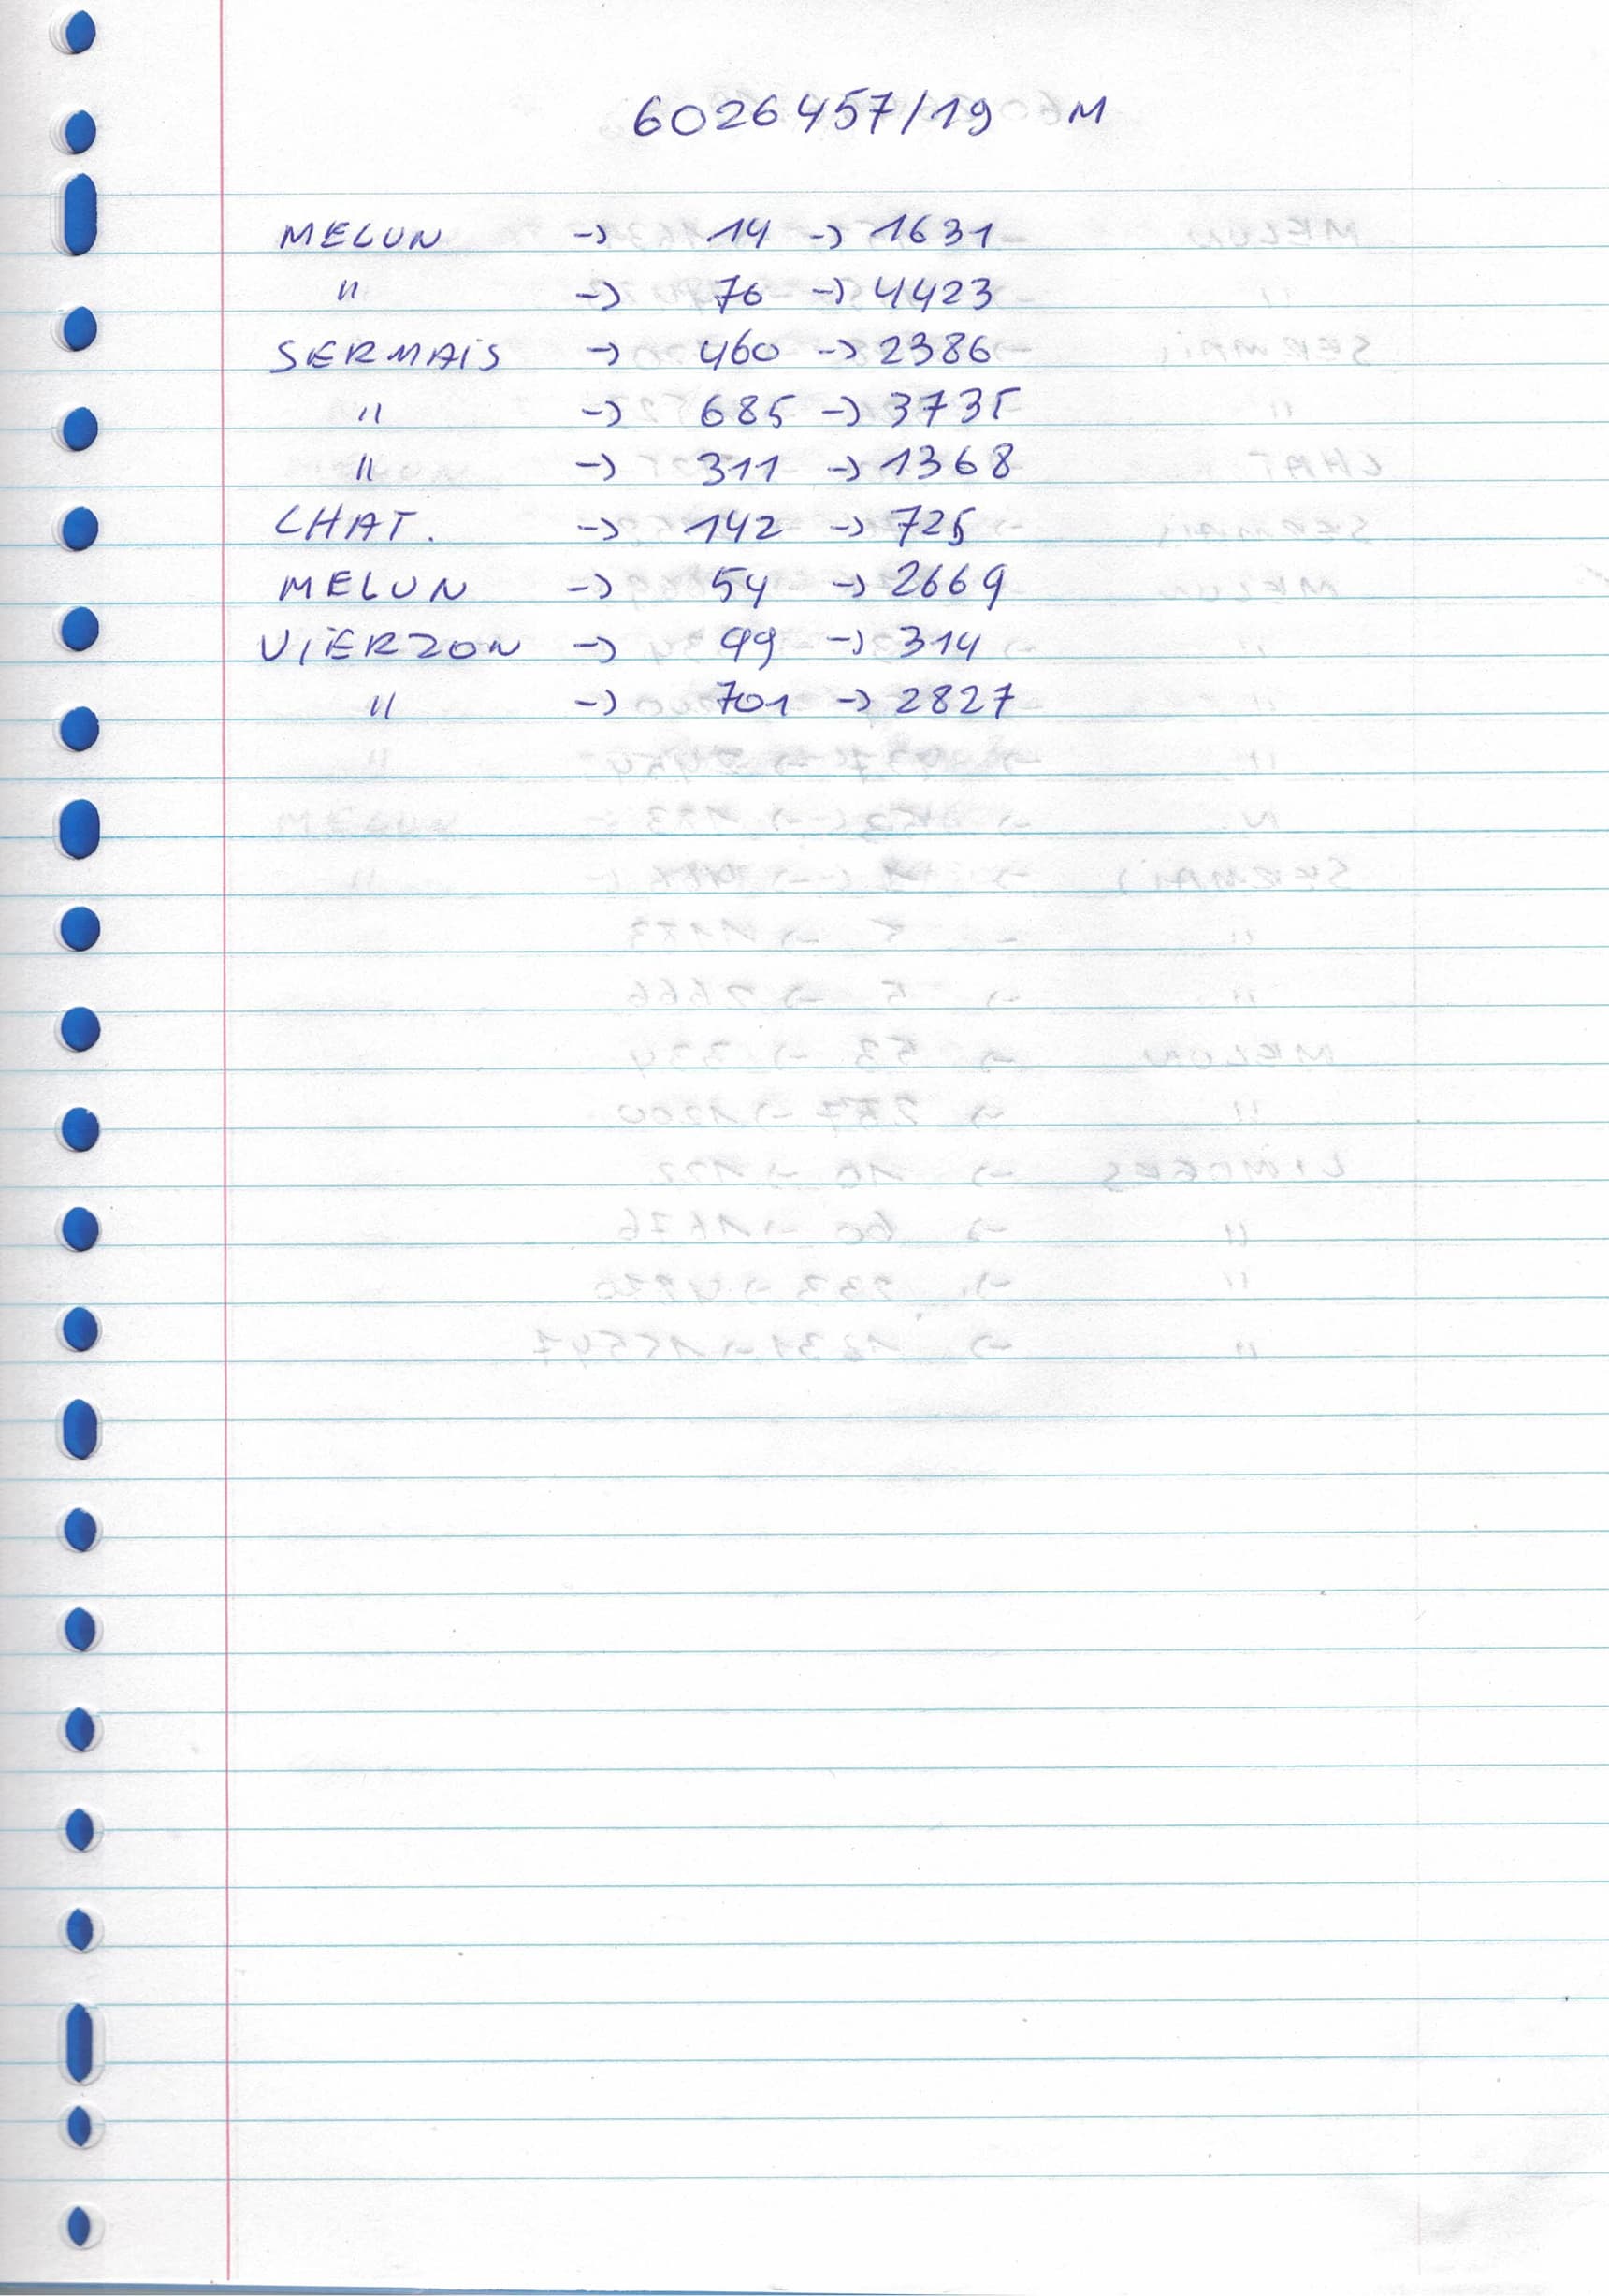 6026457/19 M
MELUN -> 14 -> 1631
" -> 76 -> 4423
SERMAIS -> 460 -> 2386
" -> 685 -> 3735
" -> 311 -> 1368
CHAT. -> 142 -> 725
MELUN -> 54 -> 2669
VIERZON -> 99 -> 314
" -> 701 -> 2827